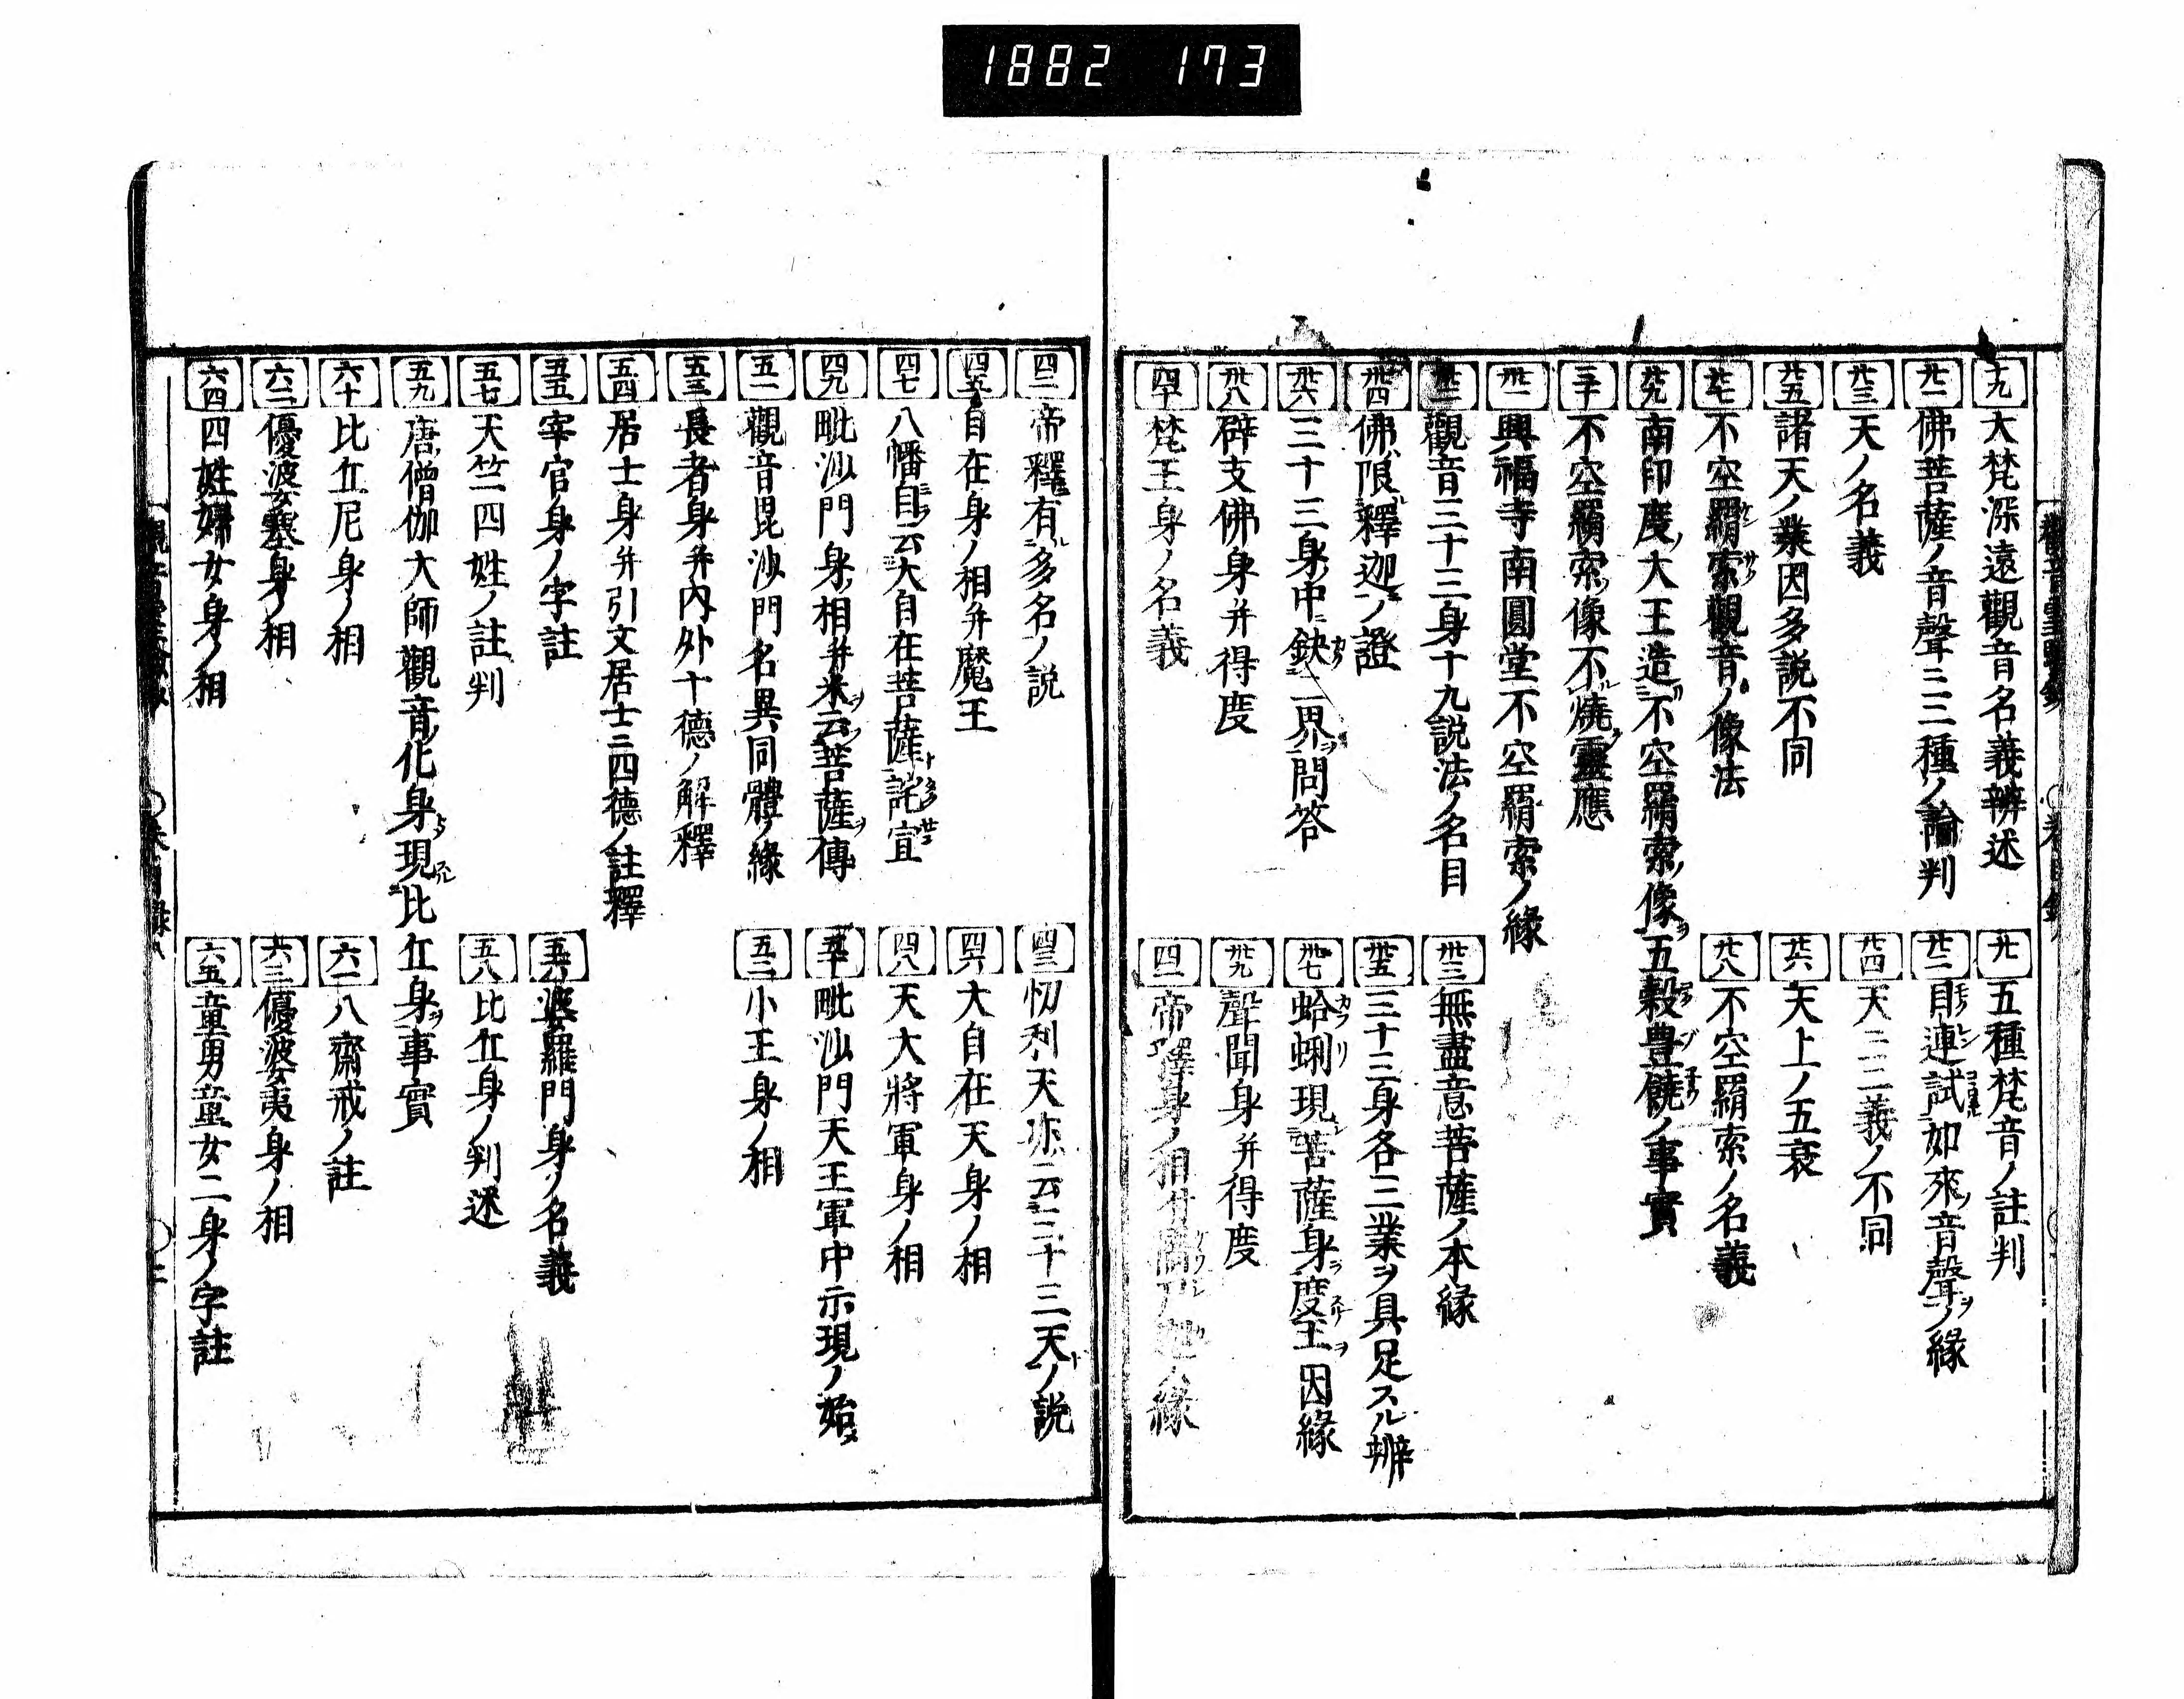 1882 173
十九 大梵深遠觀音名義辨述
廿 五種梵音ノ註判
廿一 佛菩薩ノ音聲三三種ノ論判
廿二 目連試如來ノ音聲ヲノ緣
廿三 天ノ名義
廿四 天ニ三義ノ不同
廿五 諸天ノ業因多説不同
廿六 天上ノ五衰
廿七 不空羂索觀音ノ像法
廿八 不空羂索ノ名義
廿九 南印度ノ大王造不空羂索ノ像ヲ五穀豊饒ノ事實
三十 不空羂索ノ像不燒靈應
丗一 興福寺南圓堂不空羂索ノ緣
丗二 觀音三十三身十九説法ノ名目
丗三 無盡意菩薩ノ本緣
丗四 佛限釋迦ノ證
丗五 三十三身各三業ヲ具足スル辨
丗六 三十三身中缺二界ヲ問答
丗七 蛤蜊現菩薩身ヲ度王ヲ因緣
丗八 辟支佛身并得度
丗九 聲聞身并得度
四十 梵王身ノ名義
四一 帝釋身ノ相并
四二 帝釋有多名ノ説
四三 忉利天亦云三十三天トノ説
四五 自在身ノ相并魔王
四六 大自在天身ノ相
四七 八幡自云大自在菩薩ト託宣
四八 天大將軍身ノ相
四九 毗沙門身ノ相并米云菩薩ヲ傳
五十 毗沙門天王軍中示現ノ始
五一 觀音毘沙門名異同體ノ緣
五二 小王身ノ相
五三 長者身并内外十德ノ解釋
五四 居士身并引文居士ニ四德ノ註釋
五五 宰官身ノ字註
五六 婆羅門身ノ名義
五七 天竺四姓ノ註判
五八 比丘身ノ判述
五九 唐僧伽大師觀音ノ化身現比丘身ヲ事實
六十 比丘尼身ノ相
六一 八齋戒ノ註
六二 優婆塞身ノ相
六三 優婆夷身ノ相
六四 四姓婦女身ノ相
六五 童男童女二身ノ字註